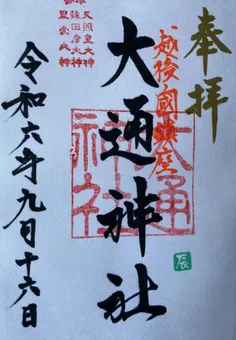 奉拝
越後國鎮座
大通神社
大通
神社
天照皇大神
猿田彦大神
豊受大神
辰
令和六年九月十六日